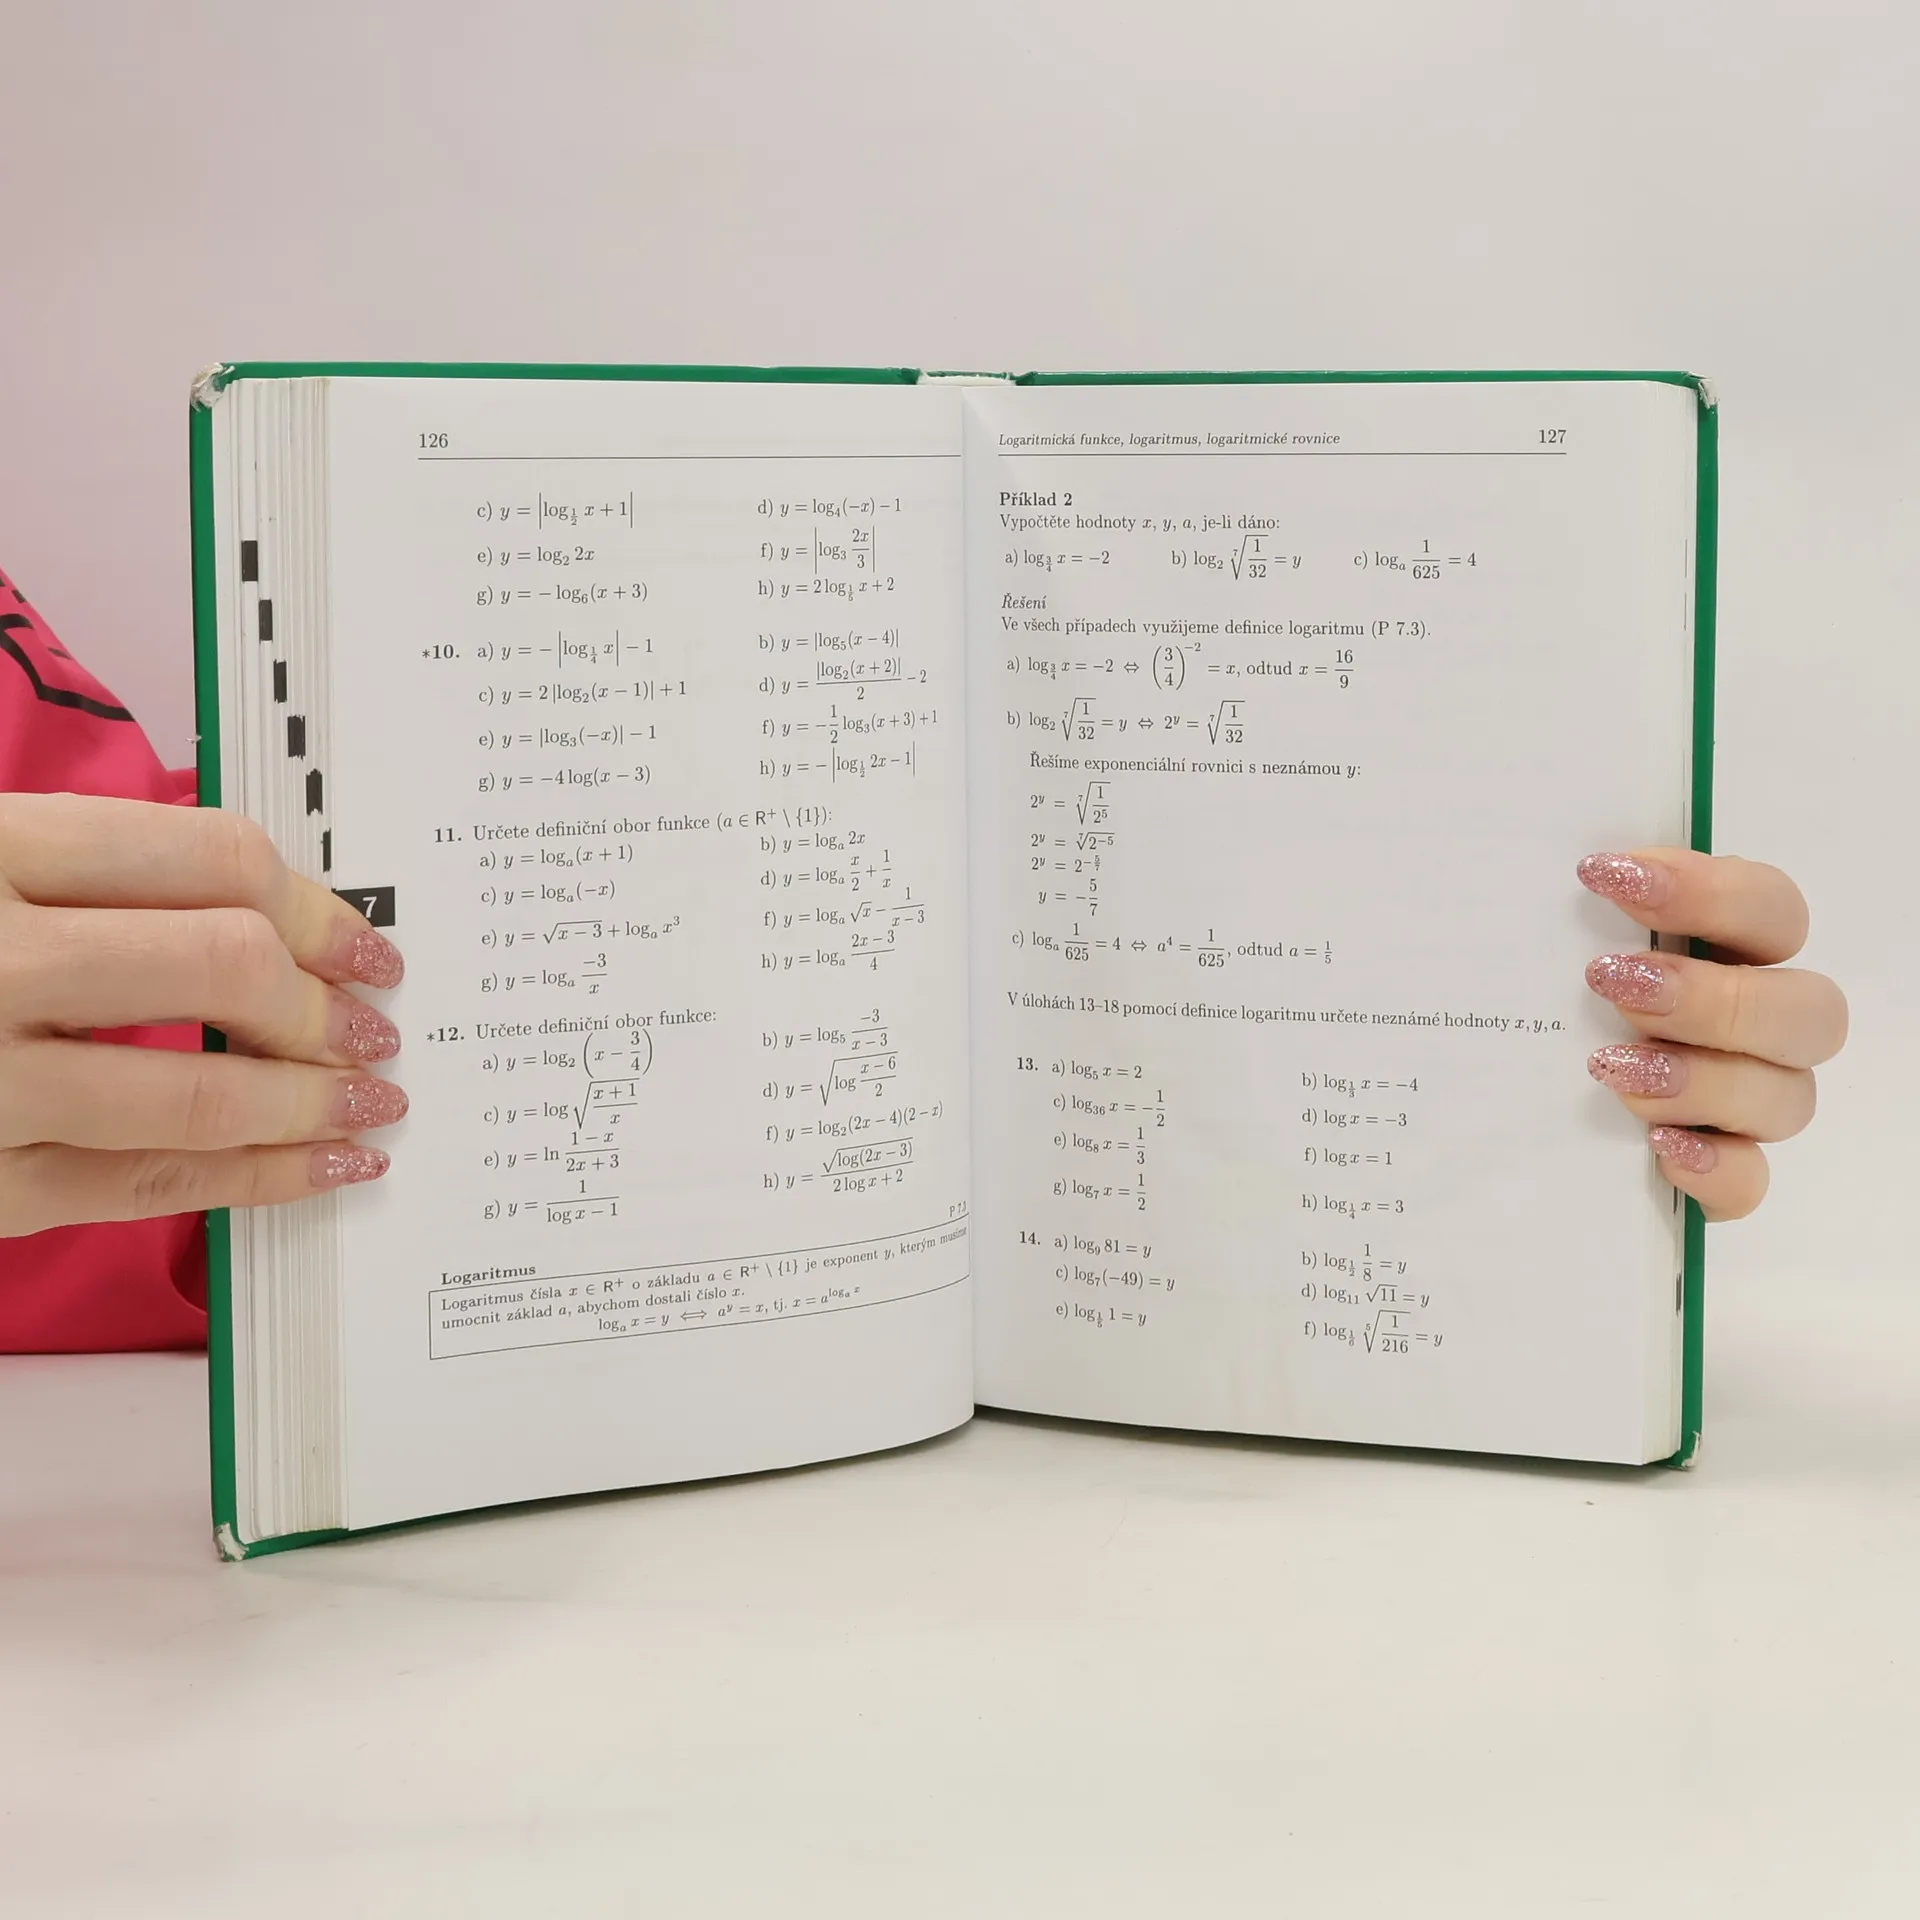 126
c) y = |log_{1/2} x + 1|
d) y = log₄(−x) − 1
e) y = log₂ 2x
f) y = |log₃ 2x/3|
g) y = − log₆(x + 3)
h) y = 2 log_{1/5} x + 2
*10. a) y = − |log_{1/4} x| − 1
b) y = |log₅(x − 4)|
c) y = 2 |log₂(x − 1)| + 1
d) y = |log₂(x + 2)|/2 − 2
e) y = |log₃(−x)| − 1
f) y = −1/2 log₃(x + 3) + 1
g) y = −4 log(x − 3)
h) y = − |log_{1/2} 2x − 1|
11. Určete definiční obor funkce (a ∈ R⁺ \ {1}):
a) y = logₐ(x + 1)
b) y = logₐ 2x
c) y = logₐ(−x)
d) y = logₐ x/2 + 1/x
e) y = √(x − 3) + logₐ x³
f) y = logₐ √x − 1/(x − 3)
g) y = logₐ −3/x
h) y = logₐ (2x − 3)/4
*12. Určete definiční obor funkce:
a) y = log₂ (x − 3/4)
b) y = log₅ −3/(x − 3)
c) y = log √((x + 1)/x)
d) y = √(log (x − 6)/2)
e) y = ln (1 − x)/(2x + 3)
f) y = log₂(2x − 4)(2 − x)
g) y = 1/(log x − 1)
h) y = √(log(2x − 3))/(2 log x + 2)
7
Logaritmus
P 7.3
Logaritmus čísla x ∈ R⁺ o základu a ∈ R⁺ \ {1} je exponent y, kterým musíme
umocnit základ a, abychom dostali číslo x.
logₐ x = y ⟺ aʸ = x, tj. x = a^{logₐ x}
Logaritmická funkce, logaritmus, logaritmické rovnice 127
Příklad 2
Vypočtěte hodnoty x, y, a, je-li dáno:
a) log_{3/4} x = −2 b) log₂ ⁷√(1/32) = y c) logₐ 1/625 = 4
Řešení
Ve všech případech využijeme definice logaritmu (P 7.3).
a) log_{3/4} x = −2 ⇔ (3/4)⁻² = x, odtud x = 16/9
b) log₂ ⁷√(1/32) = y ⇔ 2ʸ = ⁷√(1/32)
Řešíme exponenciální rovnici s neznámou y:
2ʸ = ⁷√(1/2⁵)
2ʸ = ⁷√(2⁻⁵)
2ʸ = 2^{−5/7}
y = −5/7
c) logₐ 1/625 = 4 ⇔ a⁴ = 1/625, odtud a = 1/5
V úlohách 13–18 pomocí definice logaritmu určete neznámé hodnoty x, y, a.
13. a) log₅ x = 2
b) log_{1/3} x = −4
c) log₃₆ x = −1/2
d) log x = −3
e) log₈ x = 1/3
f) log x = 1
g) log₇ x = 1/2
h) log_{1/4} x = 3
14. a) log₉ 81 = y
b) log_{1/2} 1/8 = y
c) log₇(−49) = y
d) log₁₁ √11 = y
e) log_{1/5} 1 = y
f) log_{1/6} ⁵√(1/216) = y